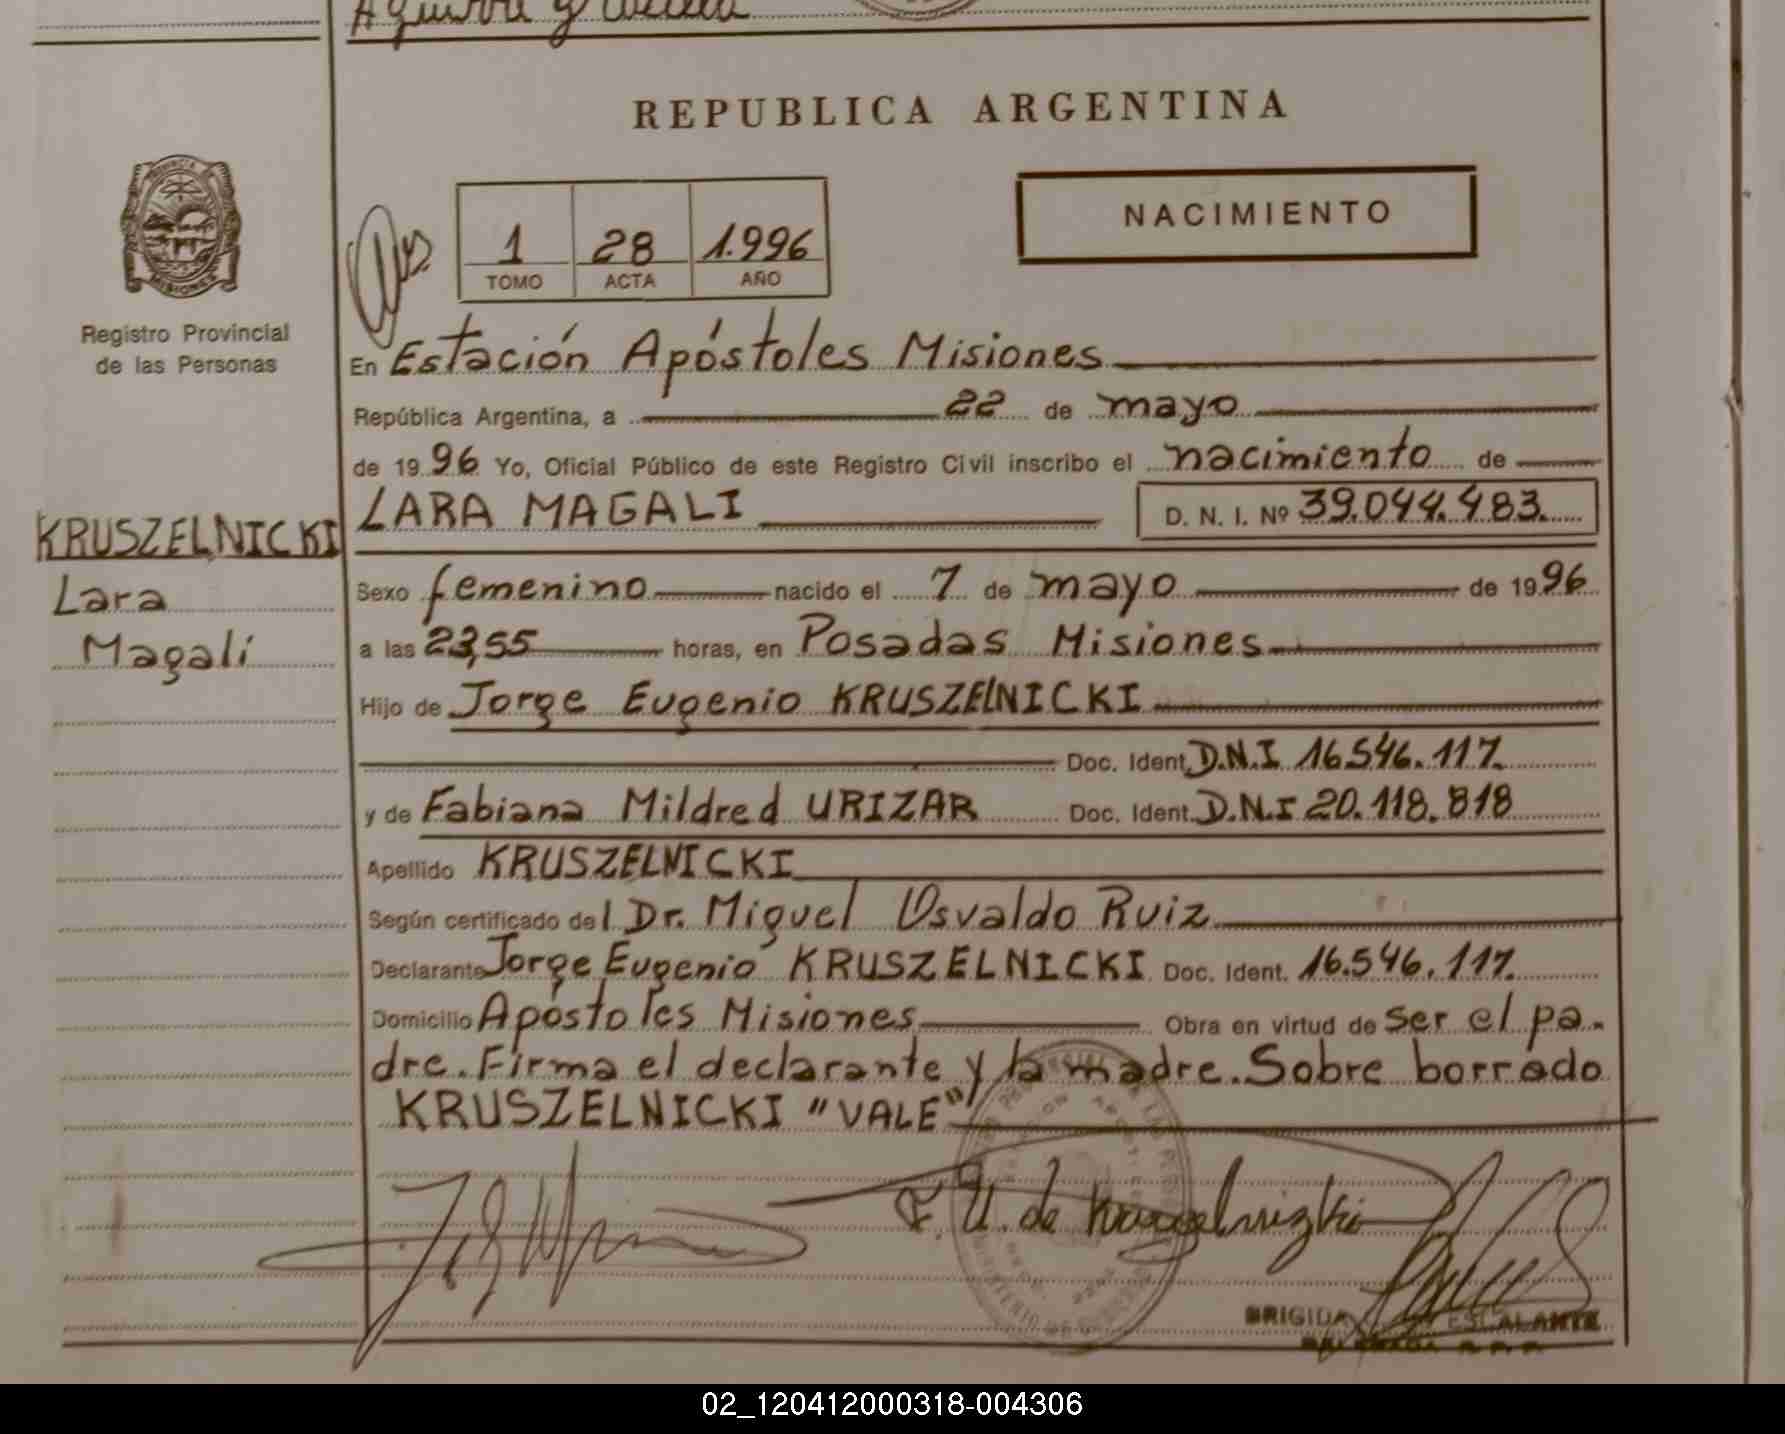 Aguirre Graciela
REPUBLICA ARGENTINA
NACIMIENTO
1 28 1.996
TOMO ACTA AÑO
PROVINCIA
MISIONES
Registro Provincial
de las Personas
KRUSZELNICKI
Lara
Magalí
En Estación Apóstoles Misiones
República Argentina, a 22 de mayo
de 1996 Yo, Oficial Público de este Registro Civil inscribo el nacimiento de
LARA MAGALI D. N. I. Nº 39.044.483.
Sexo femenino nacido el 7 de mayo de 1996
a las 23,55 horas, en Posadas Misiones
Hijo de Jorge Eugenio KRUSZELNICKI
Doc. Ident. D.N.I 16.546.117.
y de Fabiana Mildred URIZAR Doc. Ident. D.N.I 20.118.818
Apellido KRUSZELNICKI
Según certificado del Dr. Miguel Osvaldo Ruiz
Declarante Jorge Eugenio KRUSZELNICKI Doc. Ident. 16.546.117.
Domicilio Apóstoles Misiones Obra en virtud de ser el pa-
dre. Firma el declarante y la madre. Sobre borrado
KRUSZELNICKI "VALE"
F. U. de Kruszelnizki
BRIGIDA ESCALANTE
02_120412000318-004306